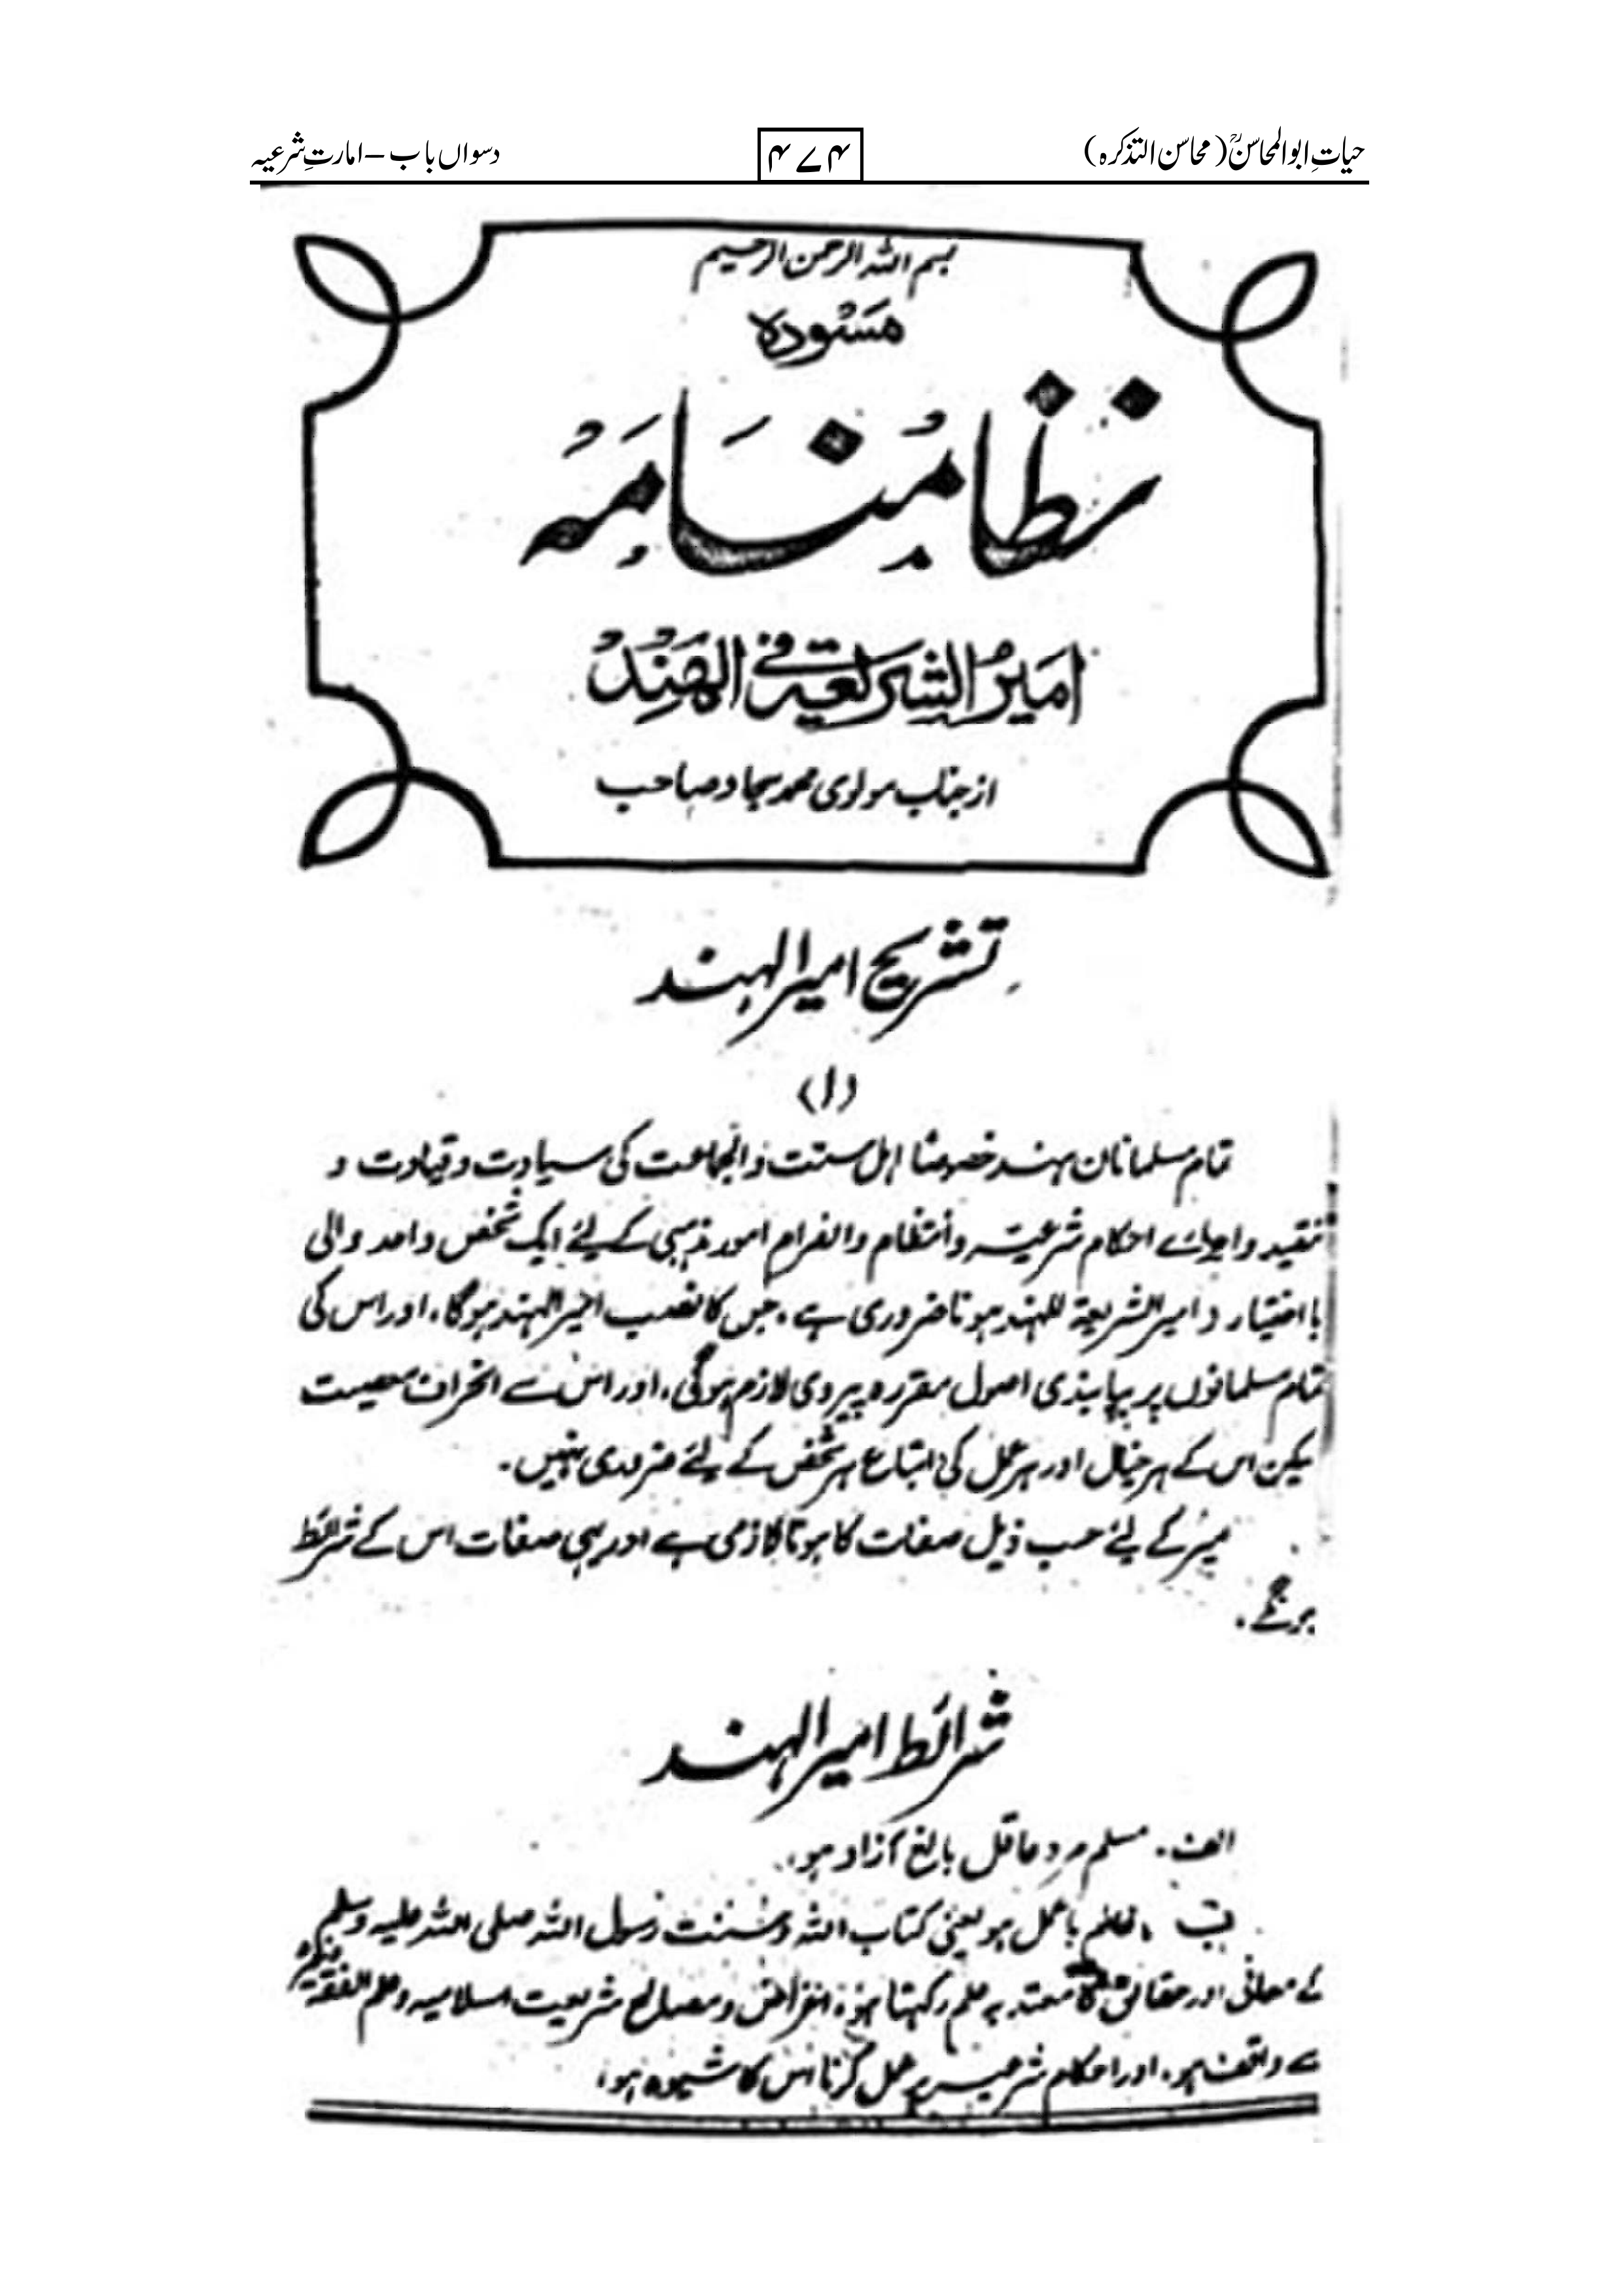 حیاتِ ابوالمحاسنؒ (محاسن التذکرہ)
۴۷۴
دسواں باب – امارتِ شرعیہ
بسم اللہ الرحمن الرحیم
مسودہ
نظامنامہ
امیر الشریعۃ فی الہند
از جناب مولوی محمد سجاد صاحب
تشریح امیر الہند
(۱)
تمام مسلمانان ہند خصوصًا اہل سنت والجماعت کی سیادت وقیادت و
تنفیذ واجراے احکام شرعیہ وانتظام وانصرام امور مذہبی کے لئے ایک شخص واحد والی
بااختیار و امیر الشریعۃ للہند ہونا ضروری ہے، جس کا لقب امیر الہند ہوگا، اور اس کی
تمام مسلمانوں پر بپابندی اصول مقررہ پیروی لازم ہوگی، اور اس سے انحراف معصیت
لیکن اس کے ہر خیال اور ہر عمل کی اتباع ہر شخص کے لئے ضروری نہیں۔
امیر کے لئے حسب ذیل صفات کا ہونا لازمی ہے اور یہی صفات اس کے شرائط
ہونگے۔
شرائط امیر الہند
الف۔ مسلم مرد عاقل بالغ آزاد ہو،
ب۔ عالم باعمل ہو یعنی کتاب اللہ وسنت رسول اللہ صلی اللہ علیہ وسلم
کے معانی اور حقائق کا معتد بہ علم رکہتا ہو، اغراض ومصالح شریعت اسلامیہ وعلم الفقہ
سے واقف ہو، اور احکام شرعیہ پر عمل کرنا اس کا شیوہ ہو،